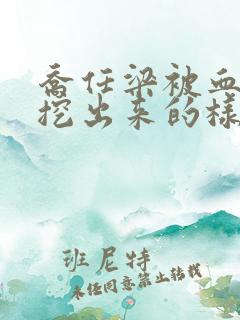 喬任梁被血
挖出来的樣
班尼特
未经同意禁止转载